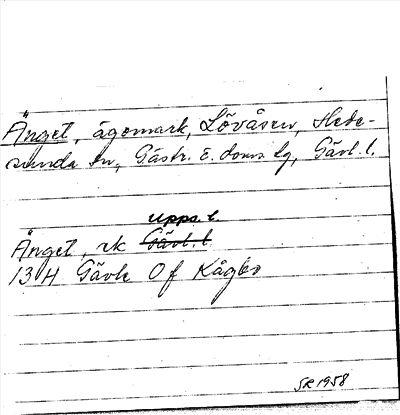 Änget, ägomark, Lövåsen, Hede-
sunda sn, Gästr. ö. doms. lg, Gävl. l.
Upps. l
Änget, rk Gävl. l
13 H Gävle 0 f Kågbo
SR 1958